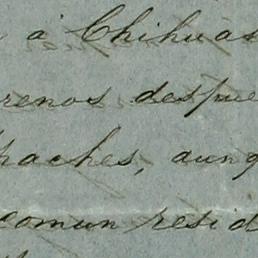 á Chihuas
renos despue
paches, aunq
comun resid